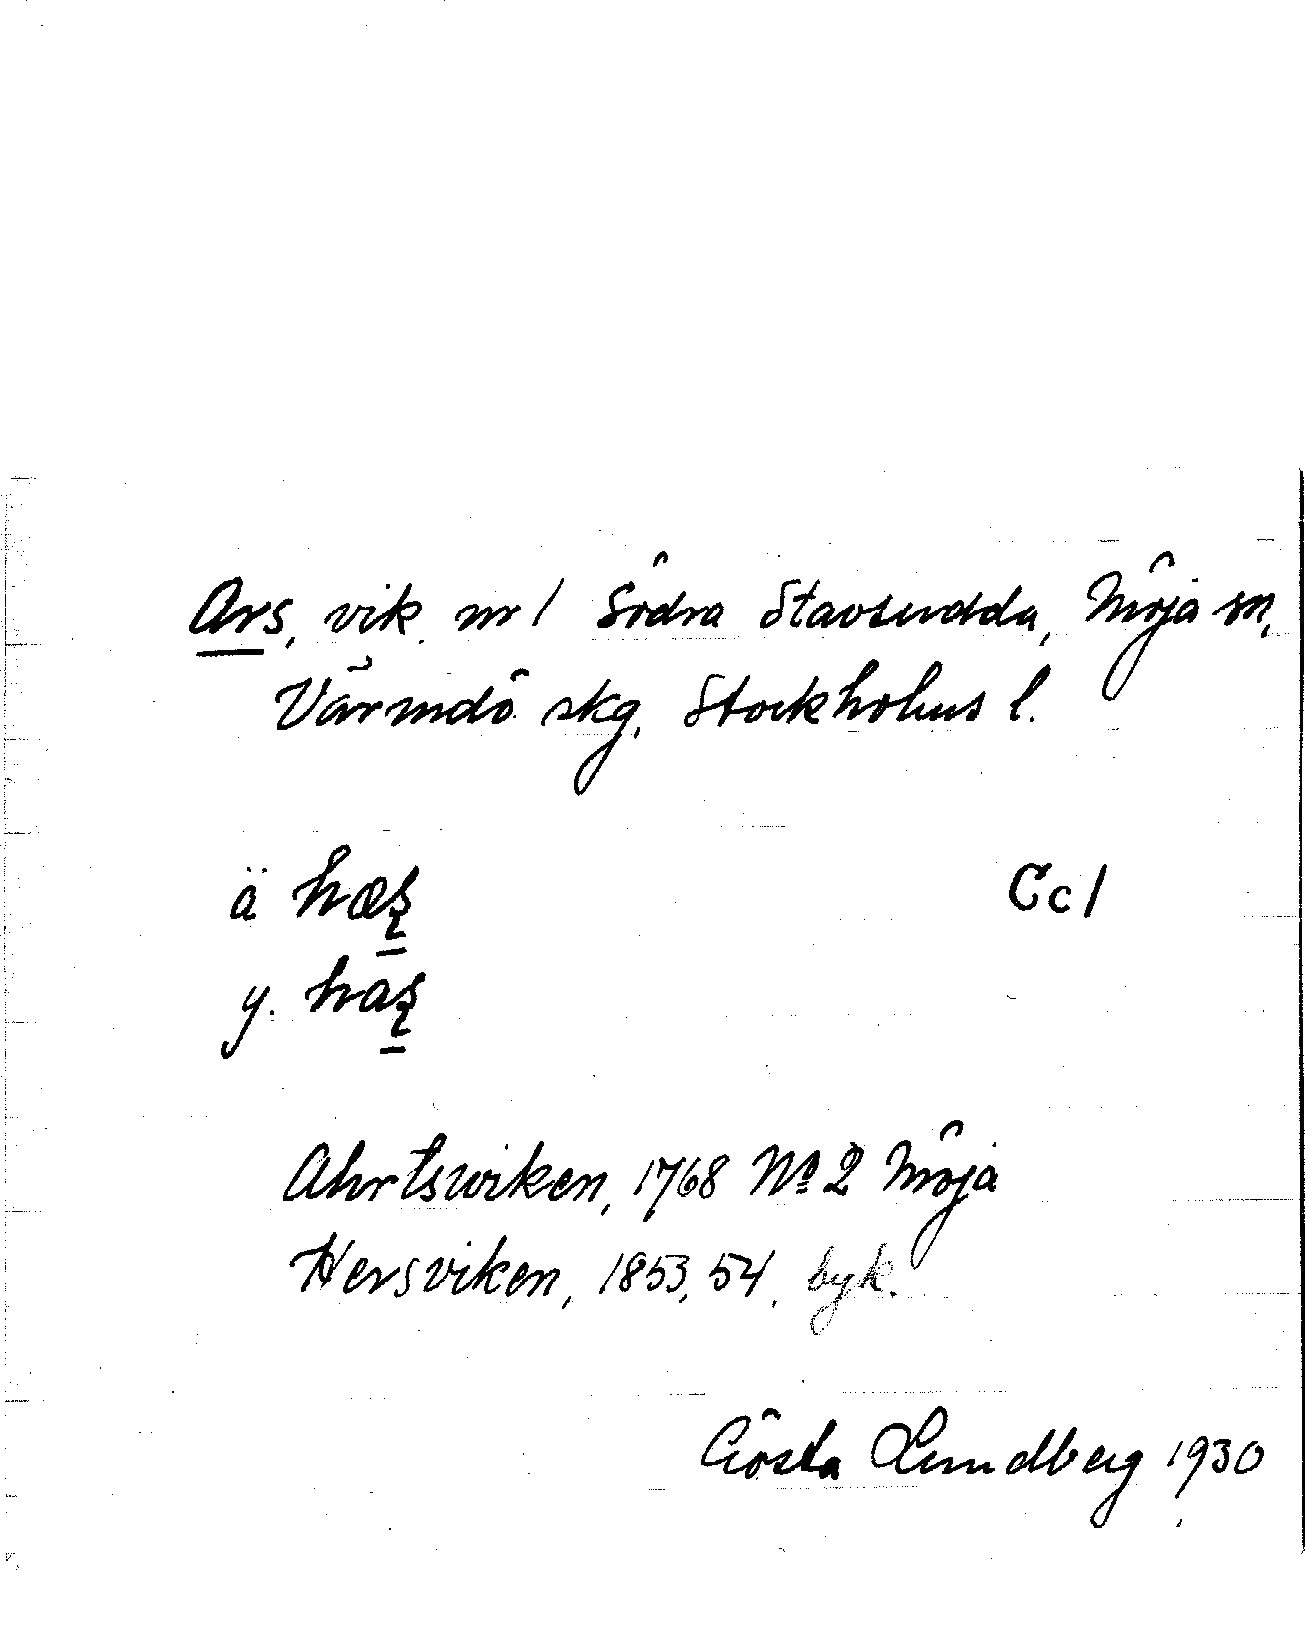 Ars, vik nr 1 Södra Stavsudda, Möja sn,
Värmdö skg, Stockholms l.
ä hæʂ Cc 1
y. haʂ
Ahrtswiken, 1768 No 2 Möja
Hersviken, 1853, 54, byk.
Gösta Lundberg 1930